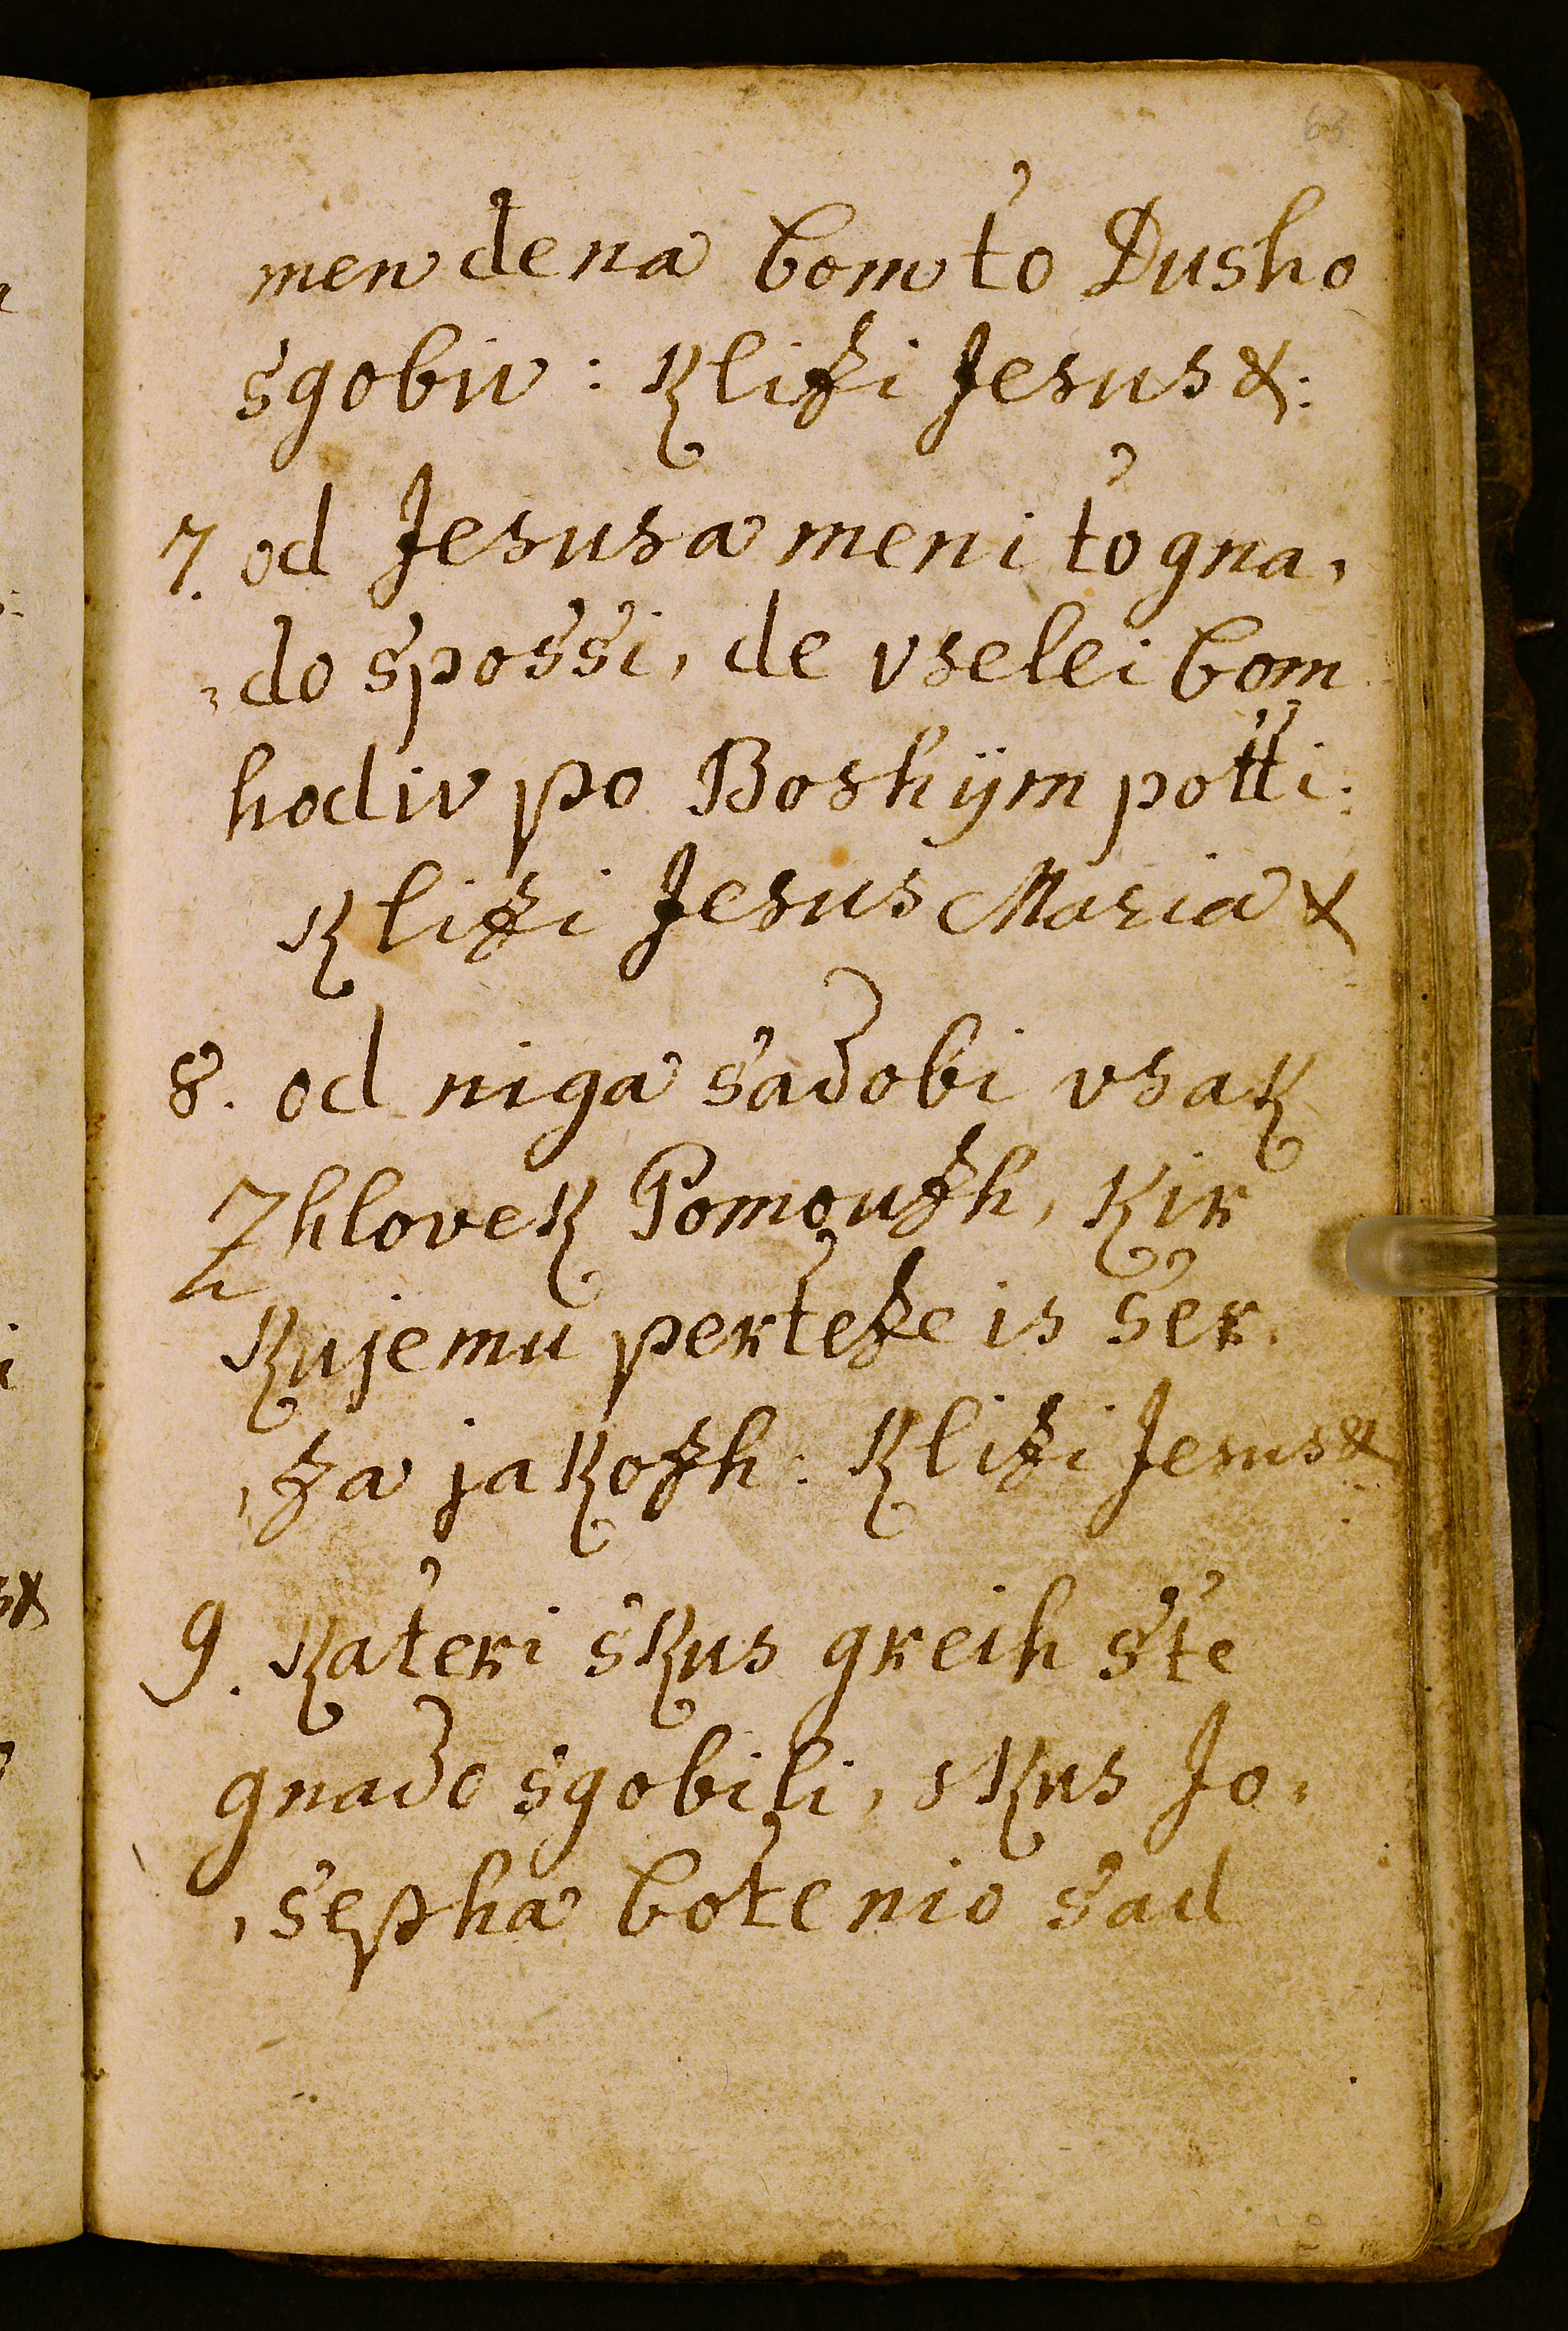 63
men dena bom to Dusho
sgobiv : Klizi Jesus &:
7. od Jesusa meni to gna,
,do spossi, de vselei bom
hodiv po Boshÿm potti:
Klizi Jesus Maria &
8. od niga sadobi vsak
Zhlovek Pomouzh, kir
kujemu perteze is ser,
,za jakozh : Klizi Jesus &
9. Kateri skus greih ste
gnado sgobili, skus Jo,
,sepha bote nio sad